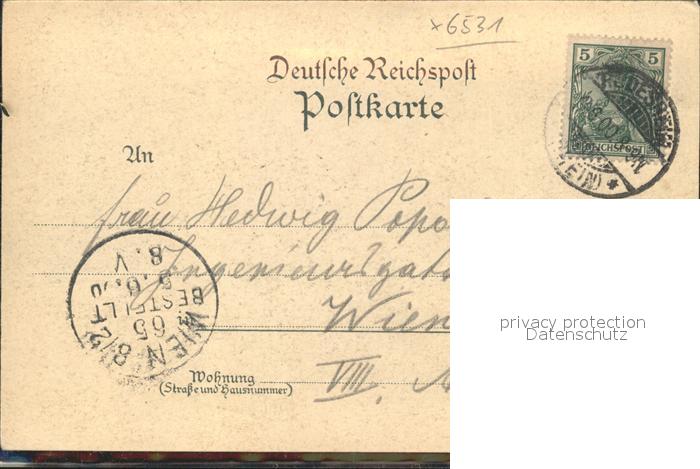 x6531
Deutsche Reichspost
Postkarte
5 5
REICHSPOST
An
Frau Hedwig Popo
Ingenieursgat
Wien
VIII.
Wohnung
(Straße und Hausnummer)
WIEN 8/2
65
BESTELLT
8. V
privacy protection
Datenschutz